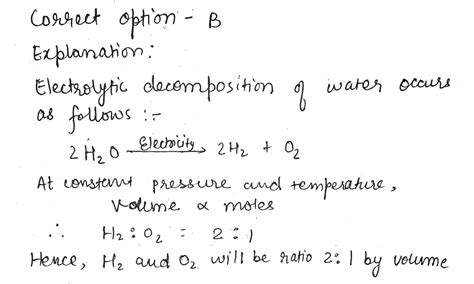 Correct option - B
Explanation:
Electrolytic decomposition of water occurs
as follows :-
2 H₂O —Electricity→ 2H₂ + O₂
At constant pressure and temperature,
Volume ∝ moles
∴ H₂ : O₂ = 2 : 1
Hence, H₂ and O₂ will be ratio 2:1 by volume